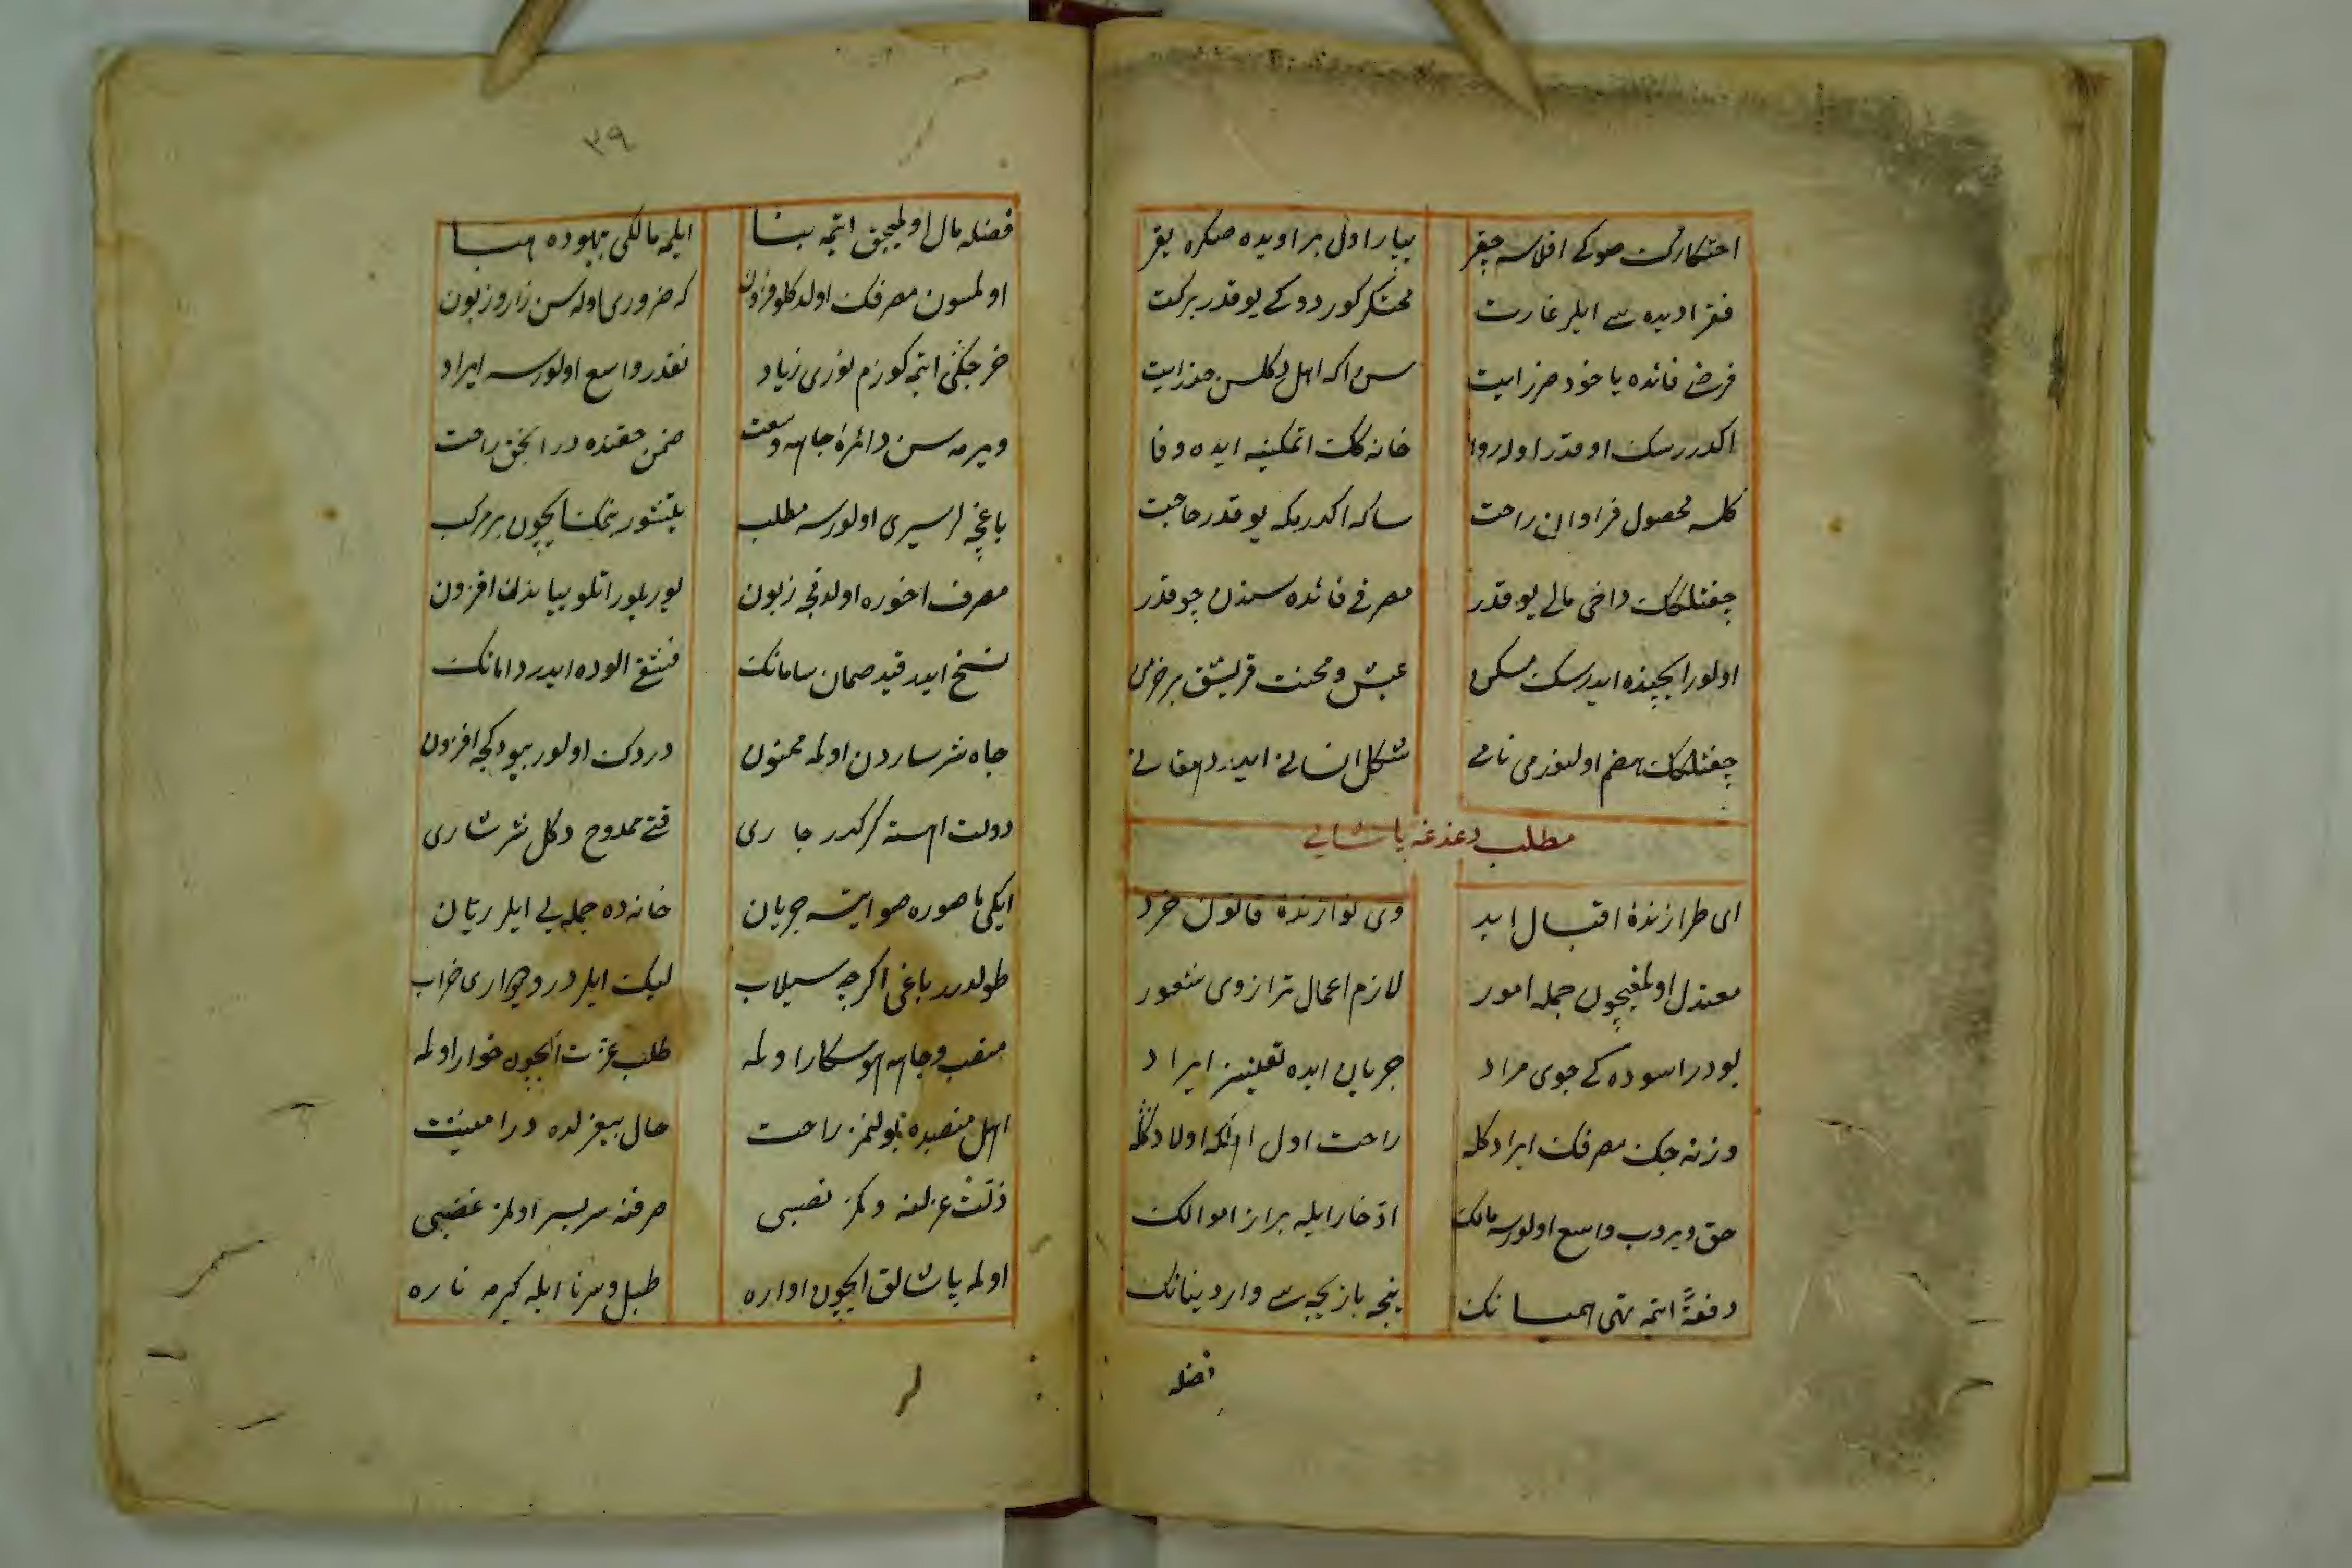 احتكارك صوكی افلاسه چیقر
یپار اول بر اویده صكره یقر
فقرا دیده سی ایلر غارت
محتكر كوردوكی یوقدر بركت
فرضی فائده یا خود ضرر ایت
سن اكه اهل دكلسن حذر ایت
اكدررسك اوقدر اولر روا
خانه كك اتمكینه ایده وفا
كلسه محصول فراوان راحت
ساكه اكدرمكه یوقدر حاجت
چفتلكك داخی مالی یوقدر
مصرفی فائده سندن چوقدر
اولور ایچینده ایدرسك مسكن
عیش و محنت قریشق بر خرمن
چفتلكك هضم اولنورمی نانی
شكل انسانی ایدر دهقانی
مطلب دغدغه پاشایی
ای طرازندهٔ اقبال ابد
وی نوازندهٔ قانون خرد
معتدل اولمغیچون جمله امور
لازم اعمال ترازوی شعور
بودر اسوده كی جوی مراد
جریان ایده تعینیز ایراد
وزنه چك مصرفك ایراد كله
راحت اول اولكه اولاد كله
حق ویروب واسع اولورسه مالك
ادخار ایله براز اموالك
دفعةً ایتمه تهی همیانك
نیجه بازیچه سی وار دنیانك
فضله
٣٩
فضله مال اولمیجق ایتمه بنا
ایلمه مالكی بیهوده هبا
اولمسون مصرفك اولدكلو فزون
كه ضروری اوله سن زار و زبون
خرجكی ایتمه كوزم نوری زیاد
نقدر واسع اولورسه ایراد
ویرمه سن دائرهٔ جاهه وسعت
ضمن حقنده در انجق راحت
باغچه لر سیری اولورسه مطلب
یتیشور بنمك ایچون بر مركب
مصرف اخوره اولدقجه زبون
یوریلور اتلو پیاده‌دن افزون
نسخ ایدر قید صمان سامانك
فشقی الوده ایدر دامانك
جاه سرساردن اولمه ممنون
دردك اولور بیودكجه افزون
دولت اهسته كركدر جاری
قتی ممدوح دكل سرشاری
ایكی ماصوره صو ایتسه جریان
خانه ده جمله یی ایلر ریان
طولدرر باغی اكرچه سیلاب
لیك ایلر در و دیواری خراب
منصب و جاهه هوسكار اولمه
طلب عزت ایچون خوار اولمه
اهل منصبده بولنمز راحت
حال بیعزلده در امنیت
ذلت عزلنه دكمز نصبی
صرفنه سربسر اولمز غضبی
اولمه پاشالق ایچون اواره
طبل و سرنا ایله كیرمه ناره